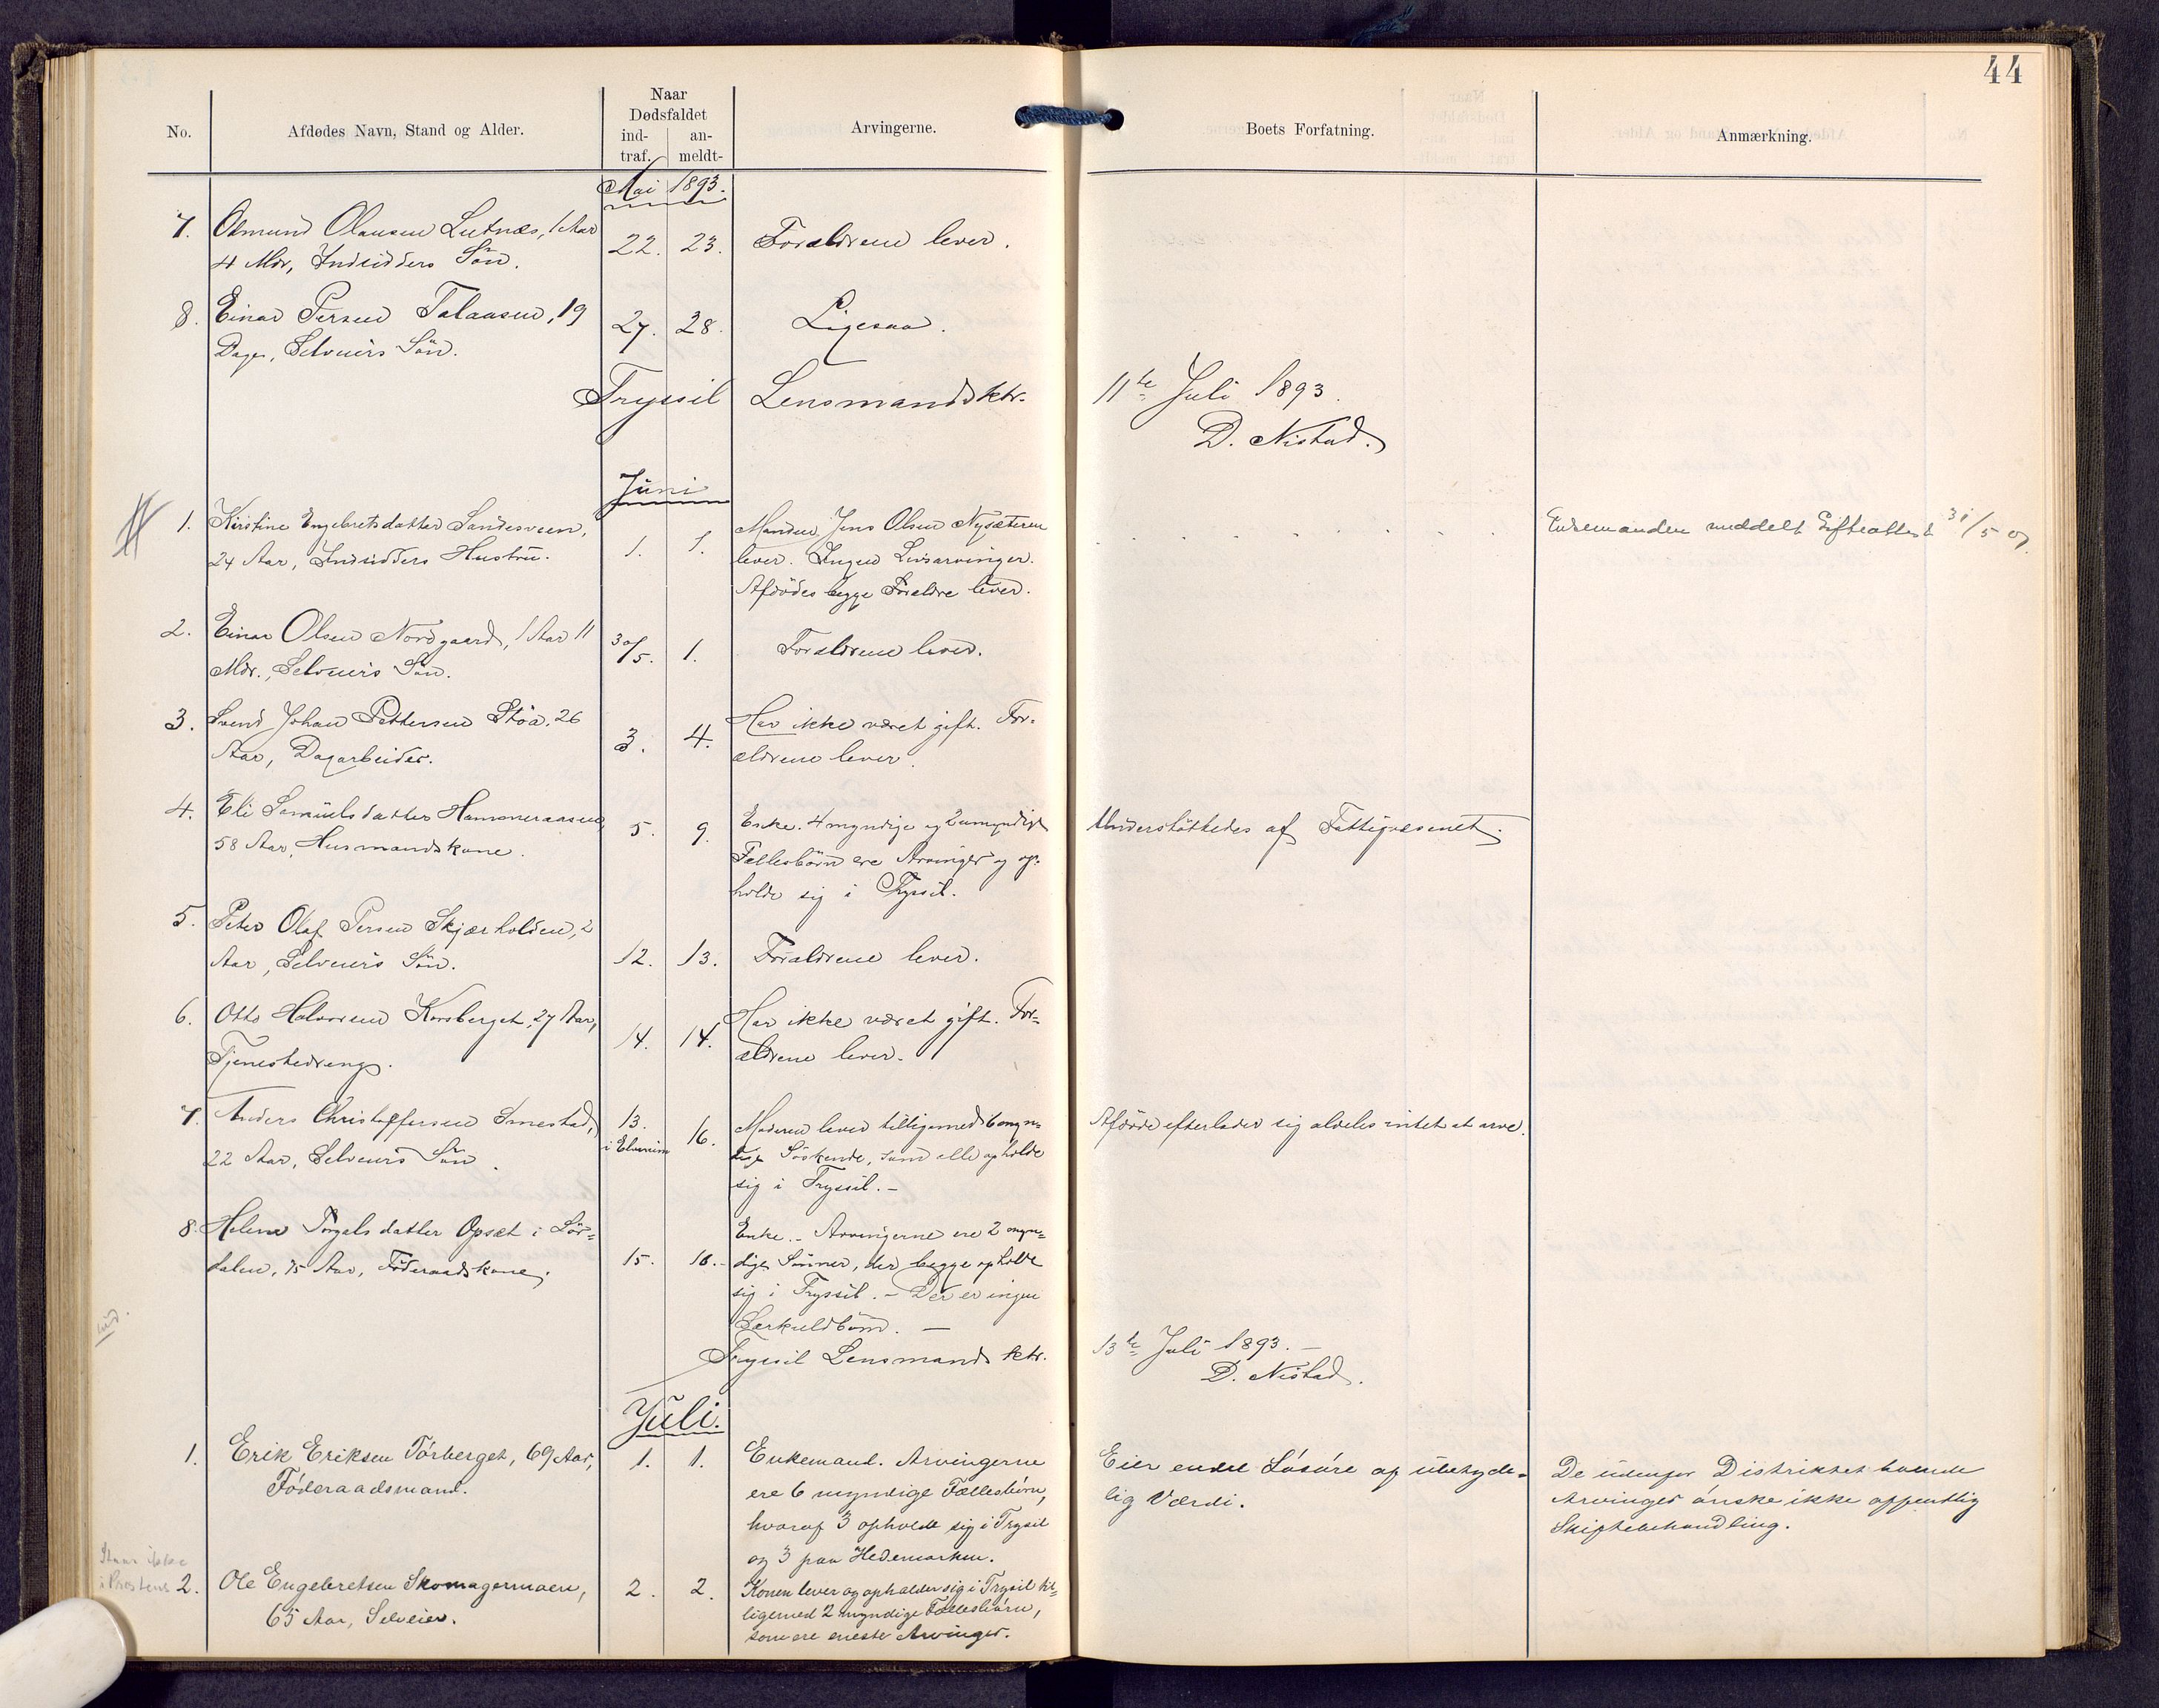 44
No.
Afdødes Navn, Stand og Alder.
Naar
Dødsfaldet
ind-
traf.
an-
meldt-
Arvingerne.
Boets Forfatning.
Anmærkning.
Mai 1893.
7. Olausen Lutnæs, 1 Aar 22. 23. Forældrene lever.
4 Mdr, Indsidders Søn.
8. Einar Persen Talaasen, 19 27. 28. Ligesaa.
Dage, Selveiers Søn.
Tryssil Lensmandsktr. 11te Juli 1893.
D. Nistad.
Juni
1. Kirstine Engebretsdatter Sandesveen, 1. 1. Manden Jens Olsen Nysæteren Enkemanden meddelt Gifteattest 31/5 07.
24 Aar, Indsidders Hustru. lever. Ingen Livsarvinger.
Afdødes begge Forældre lever.
2. Einar Olsen Nordgaard, 1 Aar 11 30/5. 1. Forældrene lever.
Mdr., Selveiers Søn.
3. Svend Johan Pettersen Støa, 26 3. 4. Har ikke været gift. For-
Aar, Dagarbeider. ældrene lever.
4. Eli Samuelsdatter Hammeraasen, 5. 9. Enke. 4 myndige og 2 umyndige Understøttedes af Fattigvæsenet.
58 Aar, Husmandskone. Fællesbørn ere Arvinger og op-
holde sig i Tryssil.
5. Peter Olaf Persen Skjærholden, 2 12. 13. Forældrene lever.
Aar, Selveiers Søn.
6. Otto Halvorsen Korsberget, 27 Aar, 14. 14. Har ikke været gift. For-
Tjenestedreng. ældrene lever.
7. Anders Christoffersen Smestad, 13. i Elverum 16. Moderen lever tilligemed 6 myn- Afdøde efterlader sig aldeles intet at arve.
22 Aar, Selveiers Søn. dige Søskende, som alle opholde
sig i Tryssil. -
8. Helene Torgalsdatter Opsæt i Lør- 15. 18. Enke. - Arvingerne ere 2 myn-
dalen, 75 Aar, Føderaadskone. dige Sønner, der begge opholde
sig i Tryssil. - Der er ingen
Særkuldbørn. -
Tryssil Lensmandsktr. 13de Juli 1893. -
D. Nistad.
Juli.
1. Erik Eriksen Tørberget, 69 Aar, 1. 1. Enkemand. Arvingerne Eier endel Løsøre af ubetyde- De udenfor Distriktet boende
Føderaadsmand. ere 6 myndige Fællesbørn, lig Værdi. Arvinger ønske ikke offentlig
hvoraf 3 opholde sig i Trysil Skiftebehandling.
og 3 paa Hedemarken.
Staar ikke
i Prestens
2. Ole Engebretsen Skomagermoen, 2. 2. Konen lever og opholder sig i Trysil til-
65 Aar, Selveier. ligemed 2 myndige Fællesbørn,
som ere eneste Arvinger.